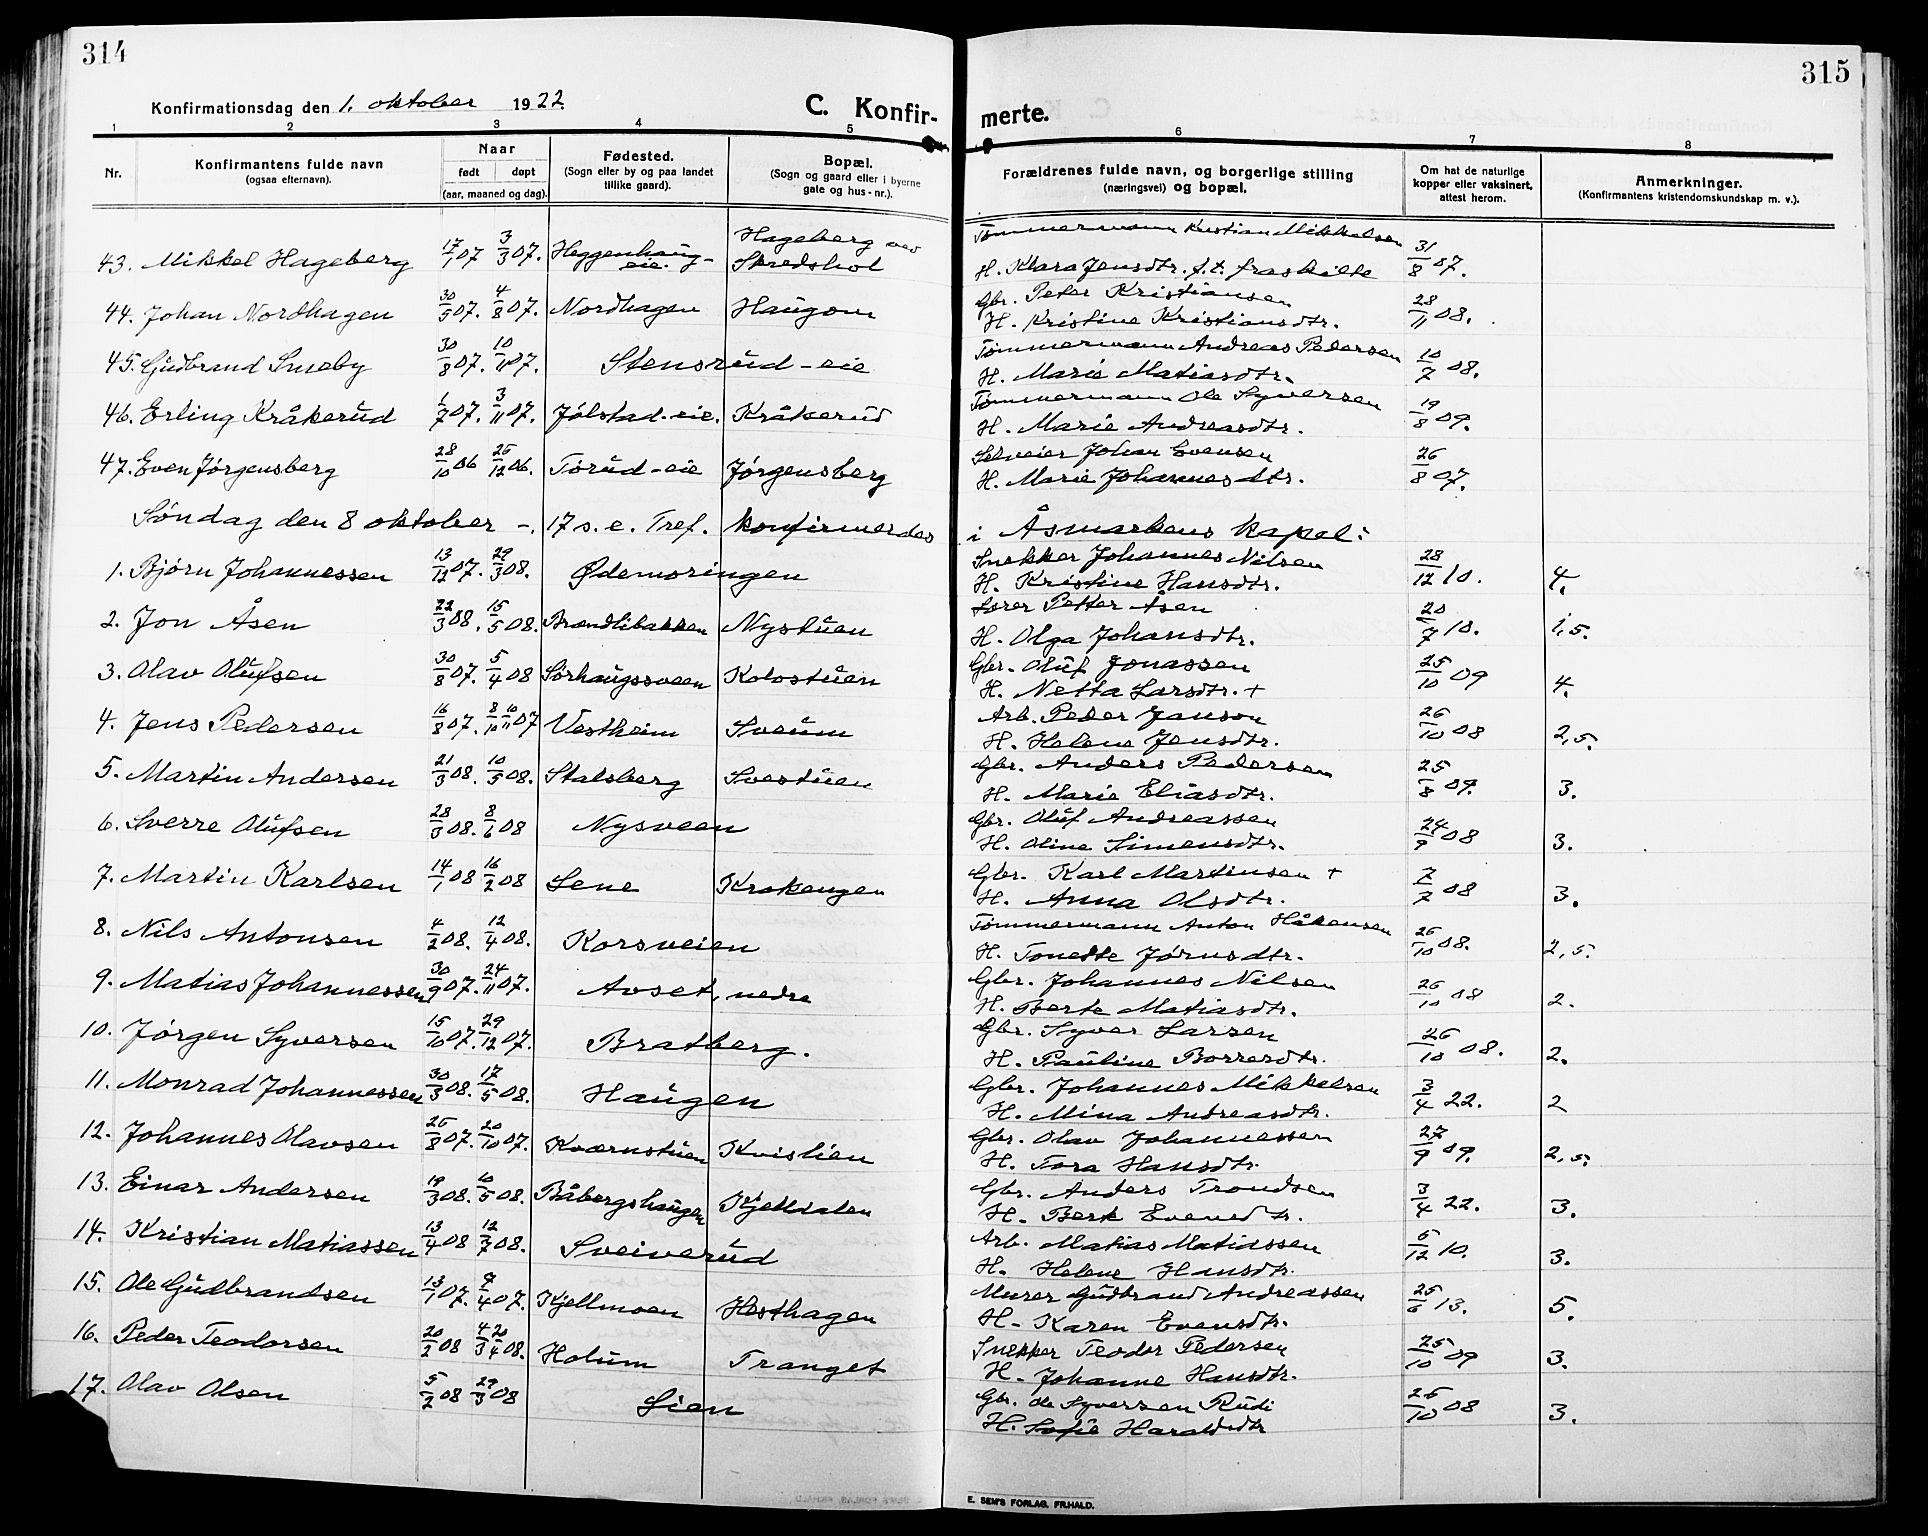 314
Konfirmationsdag den 1. oktober 1922.
C. Konfir-
1 2 3 4 5
Nr. Konfirmantens fulde navn (ogsaa efternavn). Naar født døpt (aar, maaned og dag). Fødested. (Sogn eller by og paa landet tillike gaard). Bopæl. (Sogn og gaard eller i byerne gate og hus-nr.).
43. Mikkel Hageberg 17/1 07 3/3 07. Heggenhaug-eie. Hageberg ved Skredshol
44. Johan Nordhagen 30/5 07. 4/8 07. Nordhagen Haugom
45. Gudbrand Smeby 30/8 07. 10/11 07. Stensrud-eie
46. Erling Kråkerud 1/7 07. 3/11 07. Jølstad-eie. Kråkerud
47. Even Jørgensberg 28/10 06 26/12 06. Torud-eie Jørgensberg
Søndag den 8 oktober -. 17 s. e. Tref. konfirmerdes
1. Bjørn Johannessen 13/12 07. 29/3 08. Ødemoringen
2. Jon Åsen 22/3 08. 15/5 08. Brændlibakken Nystuen
3. Olav Olufsen 30/8 07. 5/4 08 Sørhaugssveen Kolostuen
4. Jens Pedersen 16/8 07. 8/10 10/11 07 Vestheim Sveum
5. Martin Andersen 21/3 08. 10/5 08. Stalsberg Svestuen
6. Sverre Olufsen 28/3 08. 8/6 08 Nysveen
7. Martin Karlsen 14/1 08 16/2 08 Lene Krokengen
8. Nils Antonsen 4/2 08. 12/4 08. Korsveien
9. Matias Johannessen 30/9 07. 24/11 07. Avset, nedre
10. Jørgen Syversen 15/10 07. 29/12 07. Bratberg.
11. Monrad Johannessen 30/3 08. 17/5 08. Haugen
12. Johannes Olavsen 26/8 07. 20/10 07. Kværnstuen Kvislien
13. Einar Andersen 19/3 08. 10/5 08. Båbergshaugen Kjelldalen
14. Kristian Matiassen 13/4 08 12/7 08. Sveiverud
15. Ole Gudbrandsen 13/1 07. 7/4 07. Kjellmoen Hesthagen
16. Peder Teodorsen 20/2 08 4/3 20/4 08. Holum Tranget
17. Olav Olsen 5/2 08 29/3 08 Lien
315
merte.
6 7 8
Forældrenes fulde navn, og borgerlige stilling (næringsvei) og bopæl. Om hat de naturlige kopper eller vaksinert, attest herom. Anmerkninger. (Konfirmantens kristendomskundskap m. v.).
Tømmermann Kristian Mikkelsen
H. Klara Jensdtr. f.t. fraskilte 31/8 07.
Gbr. Peter Kristiansen
H. Kristine Kristiansdtr. 28/11 08.
Tømmermann Andreas Pedersen
H. Marie Matiasdtr. 10/7 08.
Tømmermann Ole Syversen
H. Marie Andreasdtr. 19/8 09.
Selveier Johan Evensen
H. Marie Johannesdtr. 26/8 07.
i Åsmarkens kapel:
Snekker Johannes Nilsen
H. Kristine Hansdtr. 28/12 10. 4.
Lærer Petter Åsen
H. Olga Johansdtr. 20/7 10. 1,5.
Gbr. Oluf Jonassen
H. Netta Larsdtr. + 25/10 09 4.
Arb. Peder Janson
H. Helene Jensdtr. 26/10 08 2,5.
Gbr. Anders Pedersen
H. Marie Eliasdtr. 25/8 09. 3.
Gbr. Oluf Andreassen
H. Oline Simensdtr. 24/9 08 3.
Gbr. Karl Martinsen +
H. Anna Olsdtr. 7/7 08 3.
Tømmermann Anton Håkensen
H. Tonette Jørnsdtr. 26/10 08. 2,5.
Gbr. Johannes Nilsen
H. Berte Matiasdtr. 26/10 08 2.
Gbr. Syver Larsen
H. Pauline Borresdtr. 26/10 08. 2.
Gbr. Johannes Mikkelsen
H. Mina Andreasdtr. 3/4 22. 2
Gbr. Olav Johannessen
H. Tora Hansdtr. 27/9 09. 2,5.
Gbr. Anders Trondsen
H. Berte Evensdtr. 3/4 22. 3.
Arb. Matias Matiassen
H. Helene Hansdtr. 5/12 10. 3.
Murer Gudbrand Andreassen
H. Karen Evensdtr. 25/6 13. 5.
Snekker Teodor Pedersen
H. Johanne Hansdtr. 25/10 09 3.
Gbr. Ole Syversen Rudi
H. Sofie Haraldsdtr 26/10 08 3.
E. SEM'S FORLAG, FR.HALD.